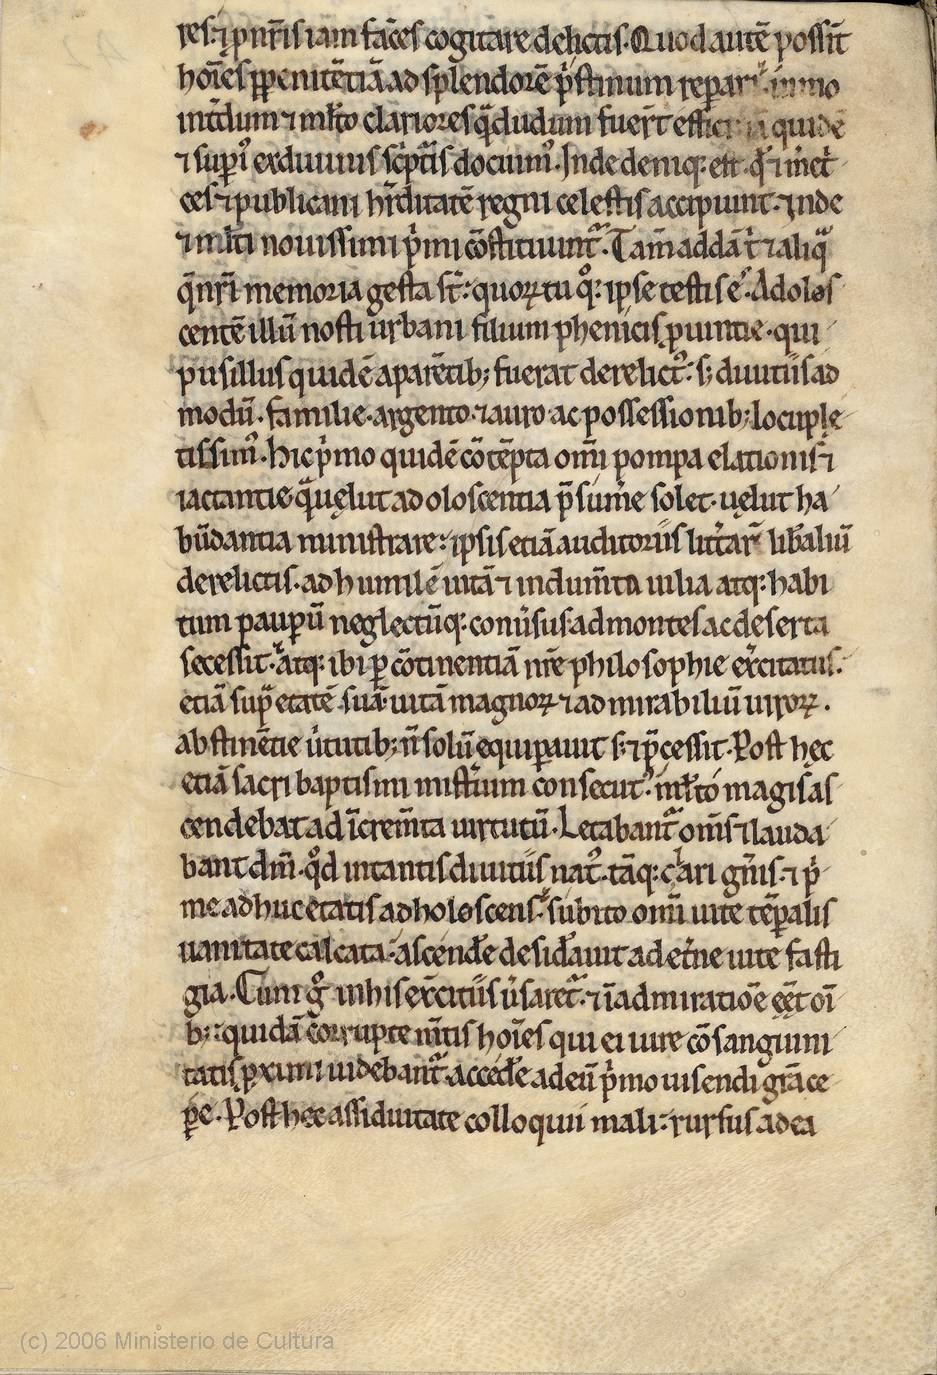 res. ⁊ p̱ nr̄is iam fac̄es cogitare delictis. Quod autē possīt
hoīes p̱ penitētiā ad splendorē p̓stinum reparͥ. immo
int̄dum ⁊ ml̄to clariores q̄̄ dudum fuer̄t quidē
⁊ sup̱ͥ ex diuinis sc̓ptis docuimꝰ. Inde deniq: est. qđ ⁊ m̓et̓
ces ⁊ publicani hr̄ditatē regni celestis accipiunt. ⁊ inde
⁊ ml̄ti nouissimi p̓mi cōstituuntᷣ. Tam̄ addāt̓ ⁊ aliq̄
q̄ nr̄i memoria gesta st̄: quoꝝ tu qꝰ: ipse testis eˢ. Adolos
centē illū nosti urbani filium phenicis p̱uintie. qui
pusillus quidē a parētib; fuerat derelictꝰ: s; diuitiis ad
modū. familie. argento. ⁊ auro. ac possessionib; locuple
tissimꝰ. Hic p̓mo quidē cōtēpta omī pompa elationis ⁊
iactantie q̄ uelut adoloscentia p̄sum̓e solet. uelut ha
būdantia ministrare: ipsis etiā auditoriis litt̓arꝫ lib̓aliū
derelictis. ad humilē uitā ⁊ indum̄ta uilia atq: habi
tum paup̱ū neglectūq: conu̓sus: ad montes ac deserta
secessit. atq: ibi p̱ cōtinentiā nr̄e philosophie ex̓citatus.
etiā sup̱ etatē suā uitā magnoꝝ ⁊ admirabiliū uiroꝝ.
abstinētie u̓tutib; n̄ solū equip̱auit s; ⁊ p̄cessit. Post hec
etiā sacri baptismi mist̓ium consecutꝰ. ml̄to magis as
cendebat ad īcrem̄ta uirtutū. Letabantᷣ om̄s ⁊ lauda
bant dn̄m. qđ in tantis diuitiis natꝰ. tāq: clari gn̄is. ⁊ p̓
me adhuc etatis adholoscens. subito omī uite tēp̱alis
uanitate calcata. ascend̓e desid̓auit ad et̓ne uite fasti
gia. Cum gͦ in his ex̓citiis u̓saretᷣ. ⁊ ī admiratiōe eēt oī
b;: quidā corrupte mētis hoīes qui ei iure cōsanguini
tatis p̱ximi uidebantᷣ. acced̓e ad eū p̓mo uisendi gr̄a ce
p̱e. Post hec assiduitate colloquii mali: rursus ad ea
(c) 2006 Ministerio de Cultura